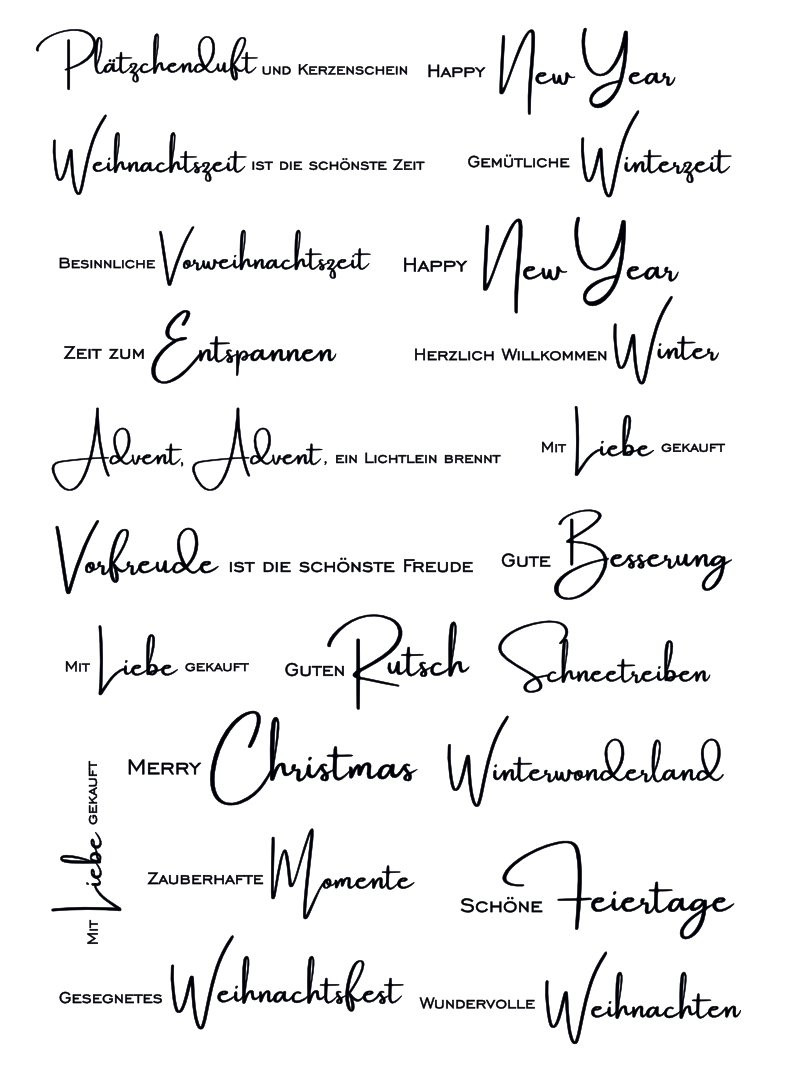 Plätzchenduft und Kerzenschein
Happy New Year
Weihnachtszeit ist die schönste Zeit
Gemütliche Winterzeit
Besinnliche Vorweihnachtszeit
Happy New Year
Zeit zum Entspannen
Herzlich Willkommen Winter
Advent, Advent, ein Lichtlein brennt
Mit Liebe gekauft
Vorfreude ist die schönste Freude
Gute Besserung
Mit Liebe gekauft
Guten Rutsch
Schneetreiben
Merry Christmas
Winterwonderland
Mit Liebe gekauft
Zauberhafte Momente
Schöne Feiertage
Gesegnetes Weihnachtsfest
Wundervolle Weihnachten